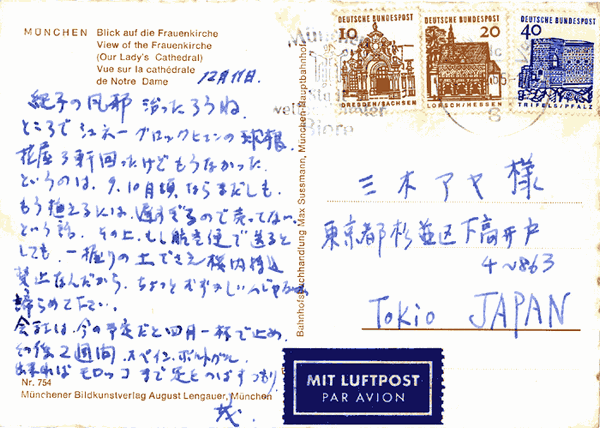 MÜNCHEN Blick auf die Frauenkirche
View of the Frauenkirche
(Our Lady's Cathedral)
Vue sur la cathédrale
de Notre Dame
12月11日.
紀子の風邪 治ったろうね.
ところでシュネーグロックヒェンの球根,
花屋3軒回ったけどもうなかった.
というのは、9.10月頃ならまだしも、
もう植えるには、遅すぎるので売ってない
という話. その上、もし航空便で送ると
しても、一握りの土でさえ国内持込
禁止なんだから、ちょっとむずかしいんじゃない
諦めて下さい.
会社は、今の予定だと四月一杯で止め、
その後2週間、スペイン、ポルトガル、
出来ればモロッコまで足をのばすつもり.
茂.
Nr. 754
Münchener Bildkunstverlag August Lengauer, München
Bahnhofsbuchhandlung Max Sussmann, München-Hauptbahnhof
DEUTSCHE BUNDESPOST
10
DRESDEN/SACHSEN
DEUTSCHE BUNDESPOST
20
LORSCH/HESSEN
DEUTSCHE BUNDESPOST
40
TRIFELS/PFALZ
München
Stadt
Biere
三木アヤ様
東京都杉並区下高井戸
4~863
Tokio JAPAN
MIT LUFTPOST
PAR AVION